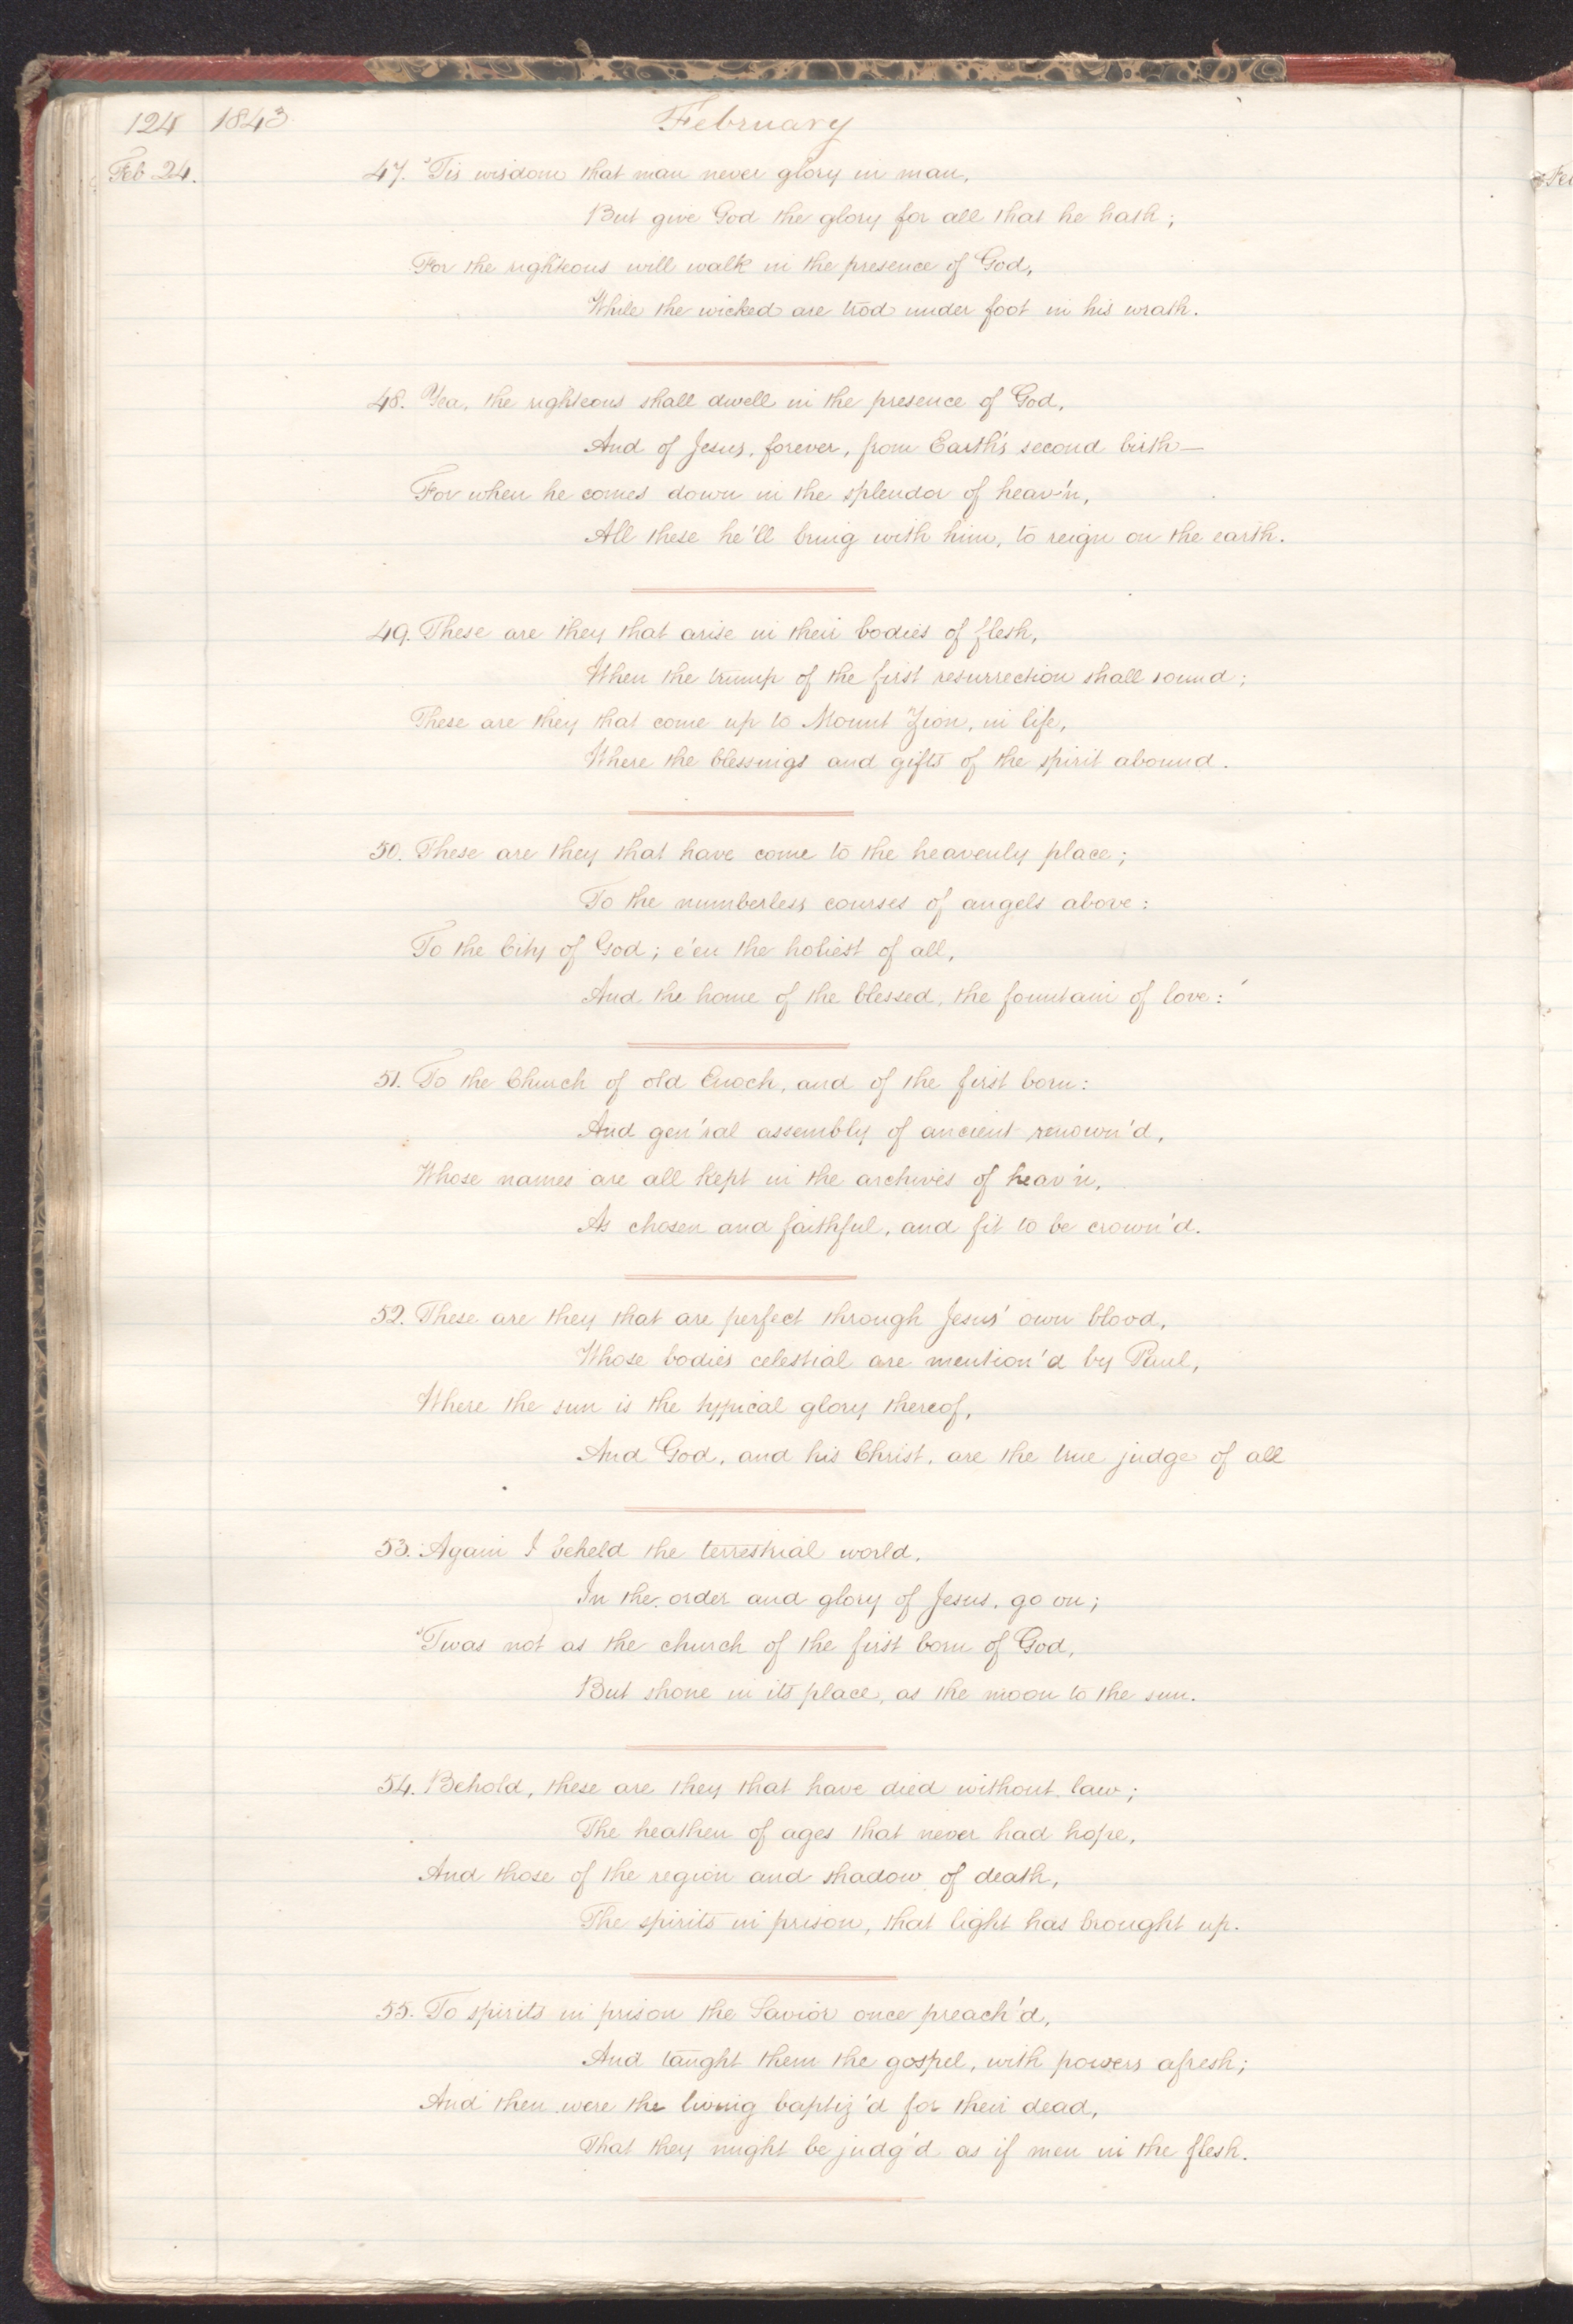 124 1843 February
Feb 24. 47. 'Tis wisdom that man never glory in man,
But give God the glory for all that he hath;
For the righteous will walk in the presence of God,
While the wicked are trod under foot in his wrath.
48. Yea, the righteous shall dwell in the presence of God,
And of Jesus, forever, from Earth's second birth—
For when he comes down in the splendor of heav'n,
All these he'll bring with him, to reign on the earth.
49. These are they that arise in their bodies of flesh,
When the trump of the first resurrection shall sound;
These are they that come up to Mount Zion, in life,
Where the blessings and gifts of the spirit abound.
50. These are they that have come to the heavenly place;
To the numberless courses of angels above:
To the City of God; e'en the holiest of all,
And the home of the blessed, the fountain of love:
51. To the Church of old Enoch, and of the first born:
And gen'ral assembly of ancient renown'd,
Whose names are all kept in the archives of heav'n,
As chosen and faithful, and fit to be crown'd.
52. These are they that are perfect through Jesus' own blood,
Whose bodies celestial are mention'd by Paul,
Where the sun is the typical glory thereof,
And God, and his Christ, are the true judge of all
53. Again I beheld the terrestrial world,
In the order and glory of Jesus, go on;
'Twas not as the church of the first born of God,
But shone in its place, as the moon to the sun.
54. Behold, these are they that have died without law;
The heathen of ages that never had hope,
And those of the region and shadow of death,
The spirits in prison, that light has brought up.
55. To spirits in prison the Savior once preach'd,
And taught them the gospel, with powers afresh;
And then were the living baptiz'd for their dead,
That they might be judg'd as if men in the flesh.